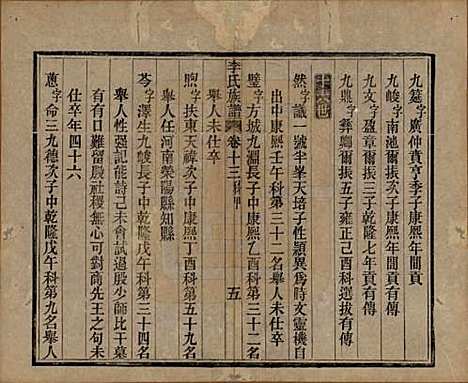 九筵字廣仲賁亨季子康熙年間貢
九峻字南池爾振次子康熙年間貢有傳
九文字盈章爾振六子乾隆七年貢有傳
九鼎字彝鄰爾振五子雍正己酉科選拔有傳
然字識一號半峯天培子性頴異為時文靈機自
出中康熙壬午科第三十二名舉人未仕卒
璧字方城九淵長子中康熙乙酉科第三十二名
舉人未仕卒
李氏族譜
卷十三
五
煦字扶東天禕次子中康熙丁酉科第五十九名
舉人任河南滎陽縣知縣
芩字澤生九峻長子中乾隆戊午科第三十四名
舉人性强記能詩己未會試過殷少師比干墓
有有日難留殷社稷無心可對商先王之句未
仕卒年四十六
蕙字侖三九德次子中乾隆戊午科第九名舉人